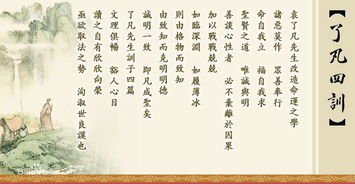 【了凡四訓】
袁了凡先生改造命運之學
諸惡莫作　眾善奉行
命自我立　福自我求
聖賢之道　唯誠與明
善談心性者　必不棄離於因果
如以戰戰兢兢
如臨深淵　如履薄冰
則由格物而致知
由致知而克明明德
誠明一致　即凡成聖矣
了凡先生訓子四篇
文理俱暢　豁人心目
讀之自有欣欣向榮
亟欲取法之勢　洵淑世良謨也